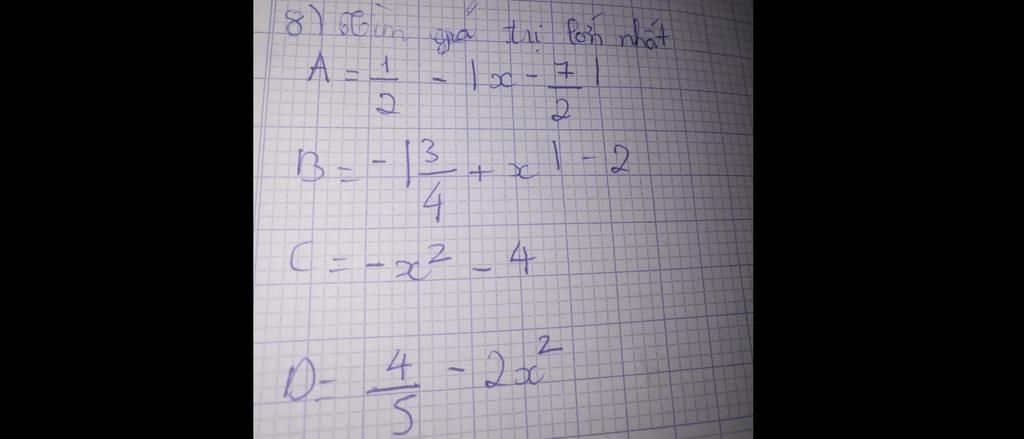 8) Tìm giá trị lớn nhất
A = 1/2 - |x - 7/2|
B = -|3/4 + x| - 2
C = -x² - 4
D = 4/5 - 2x²